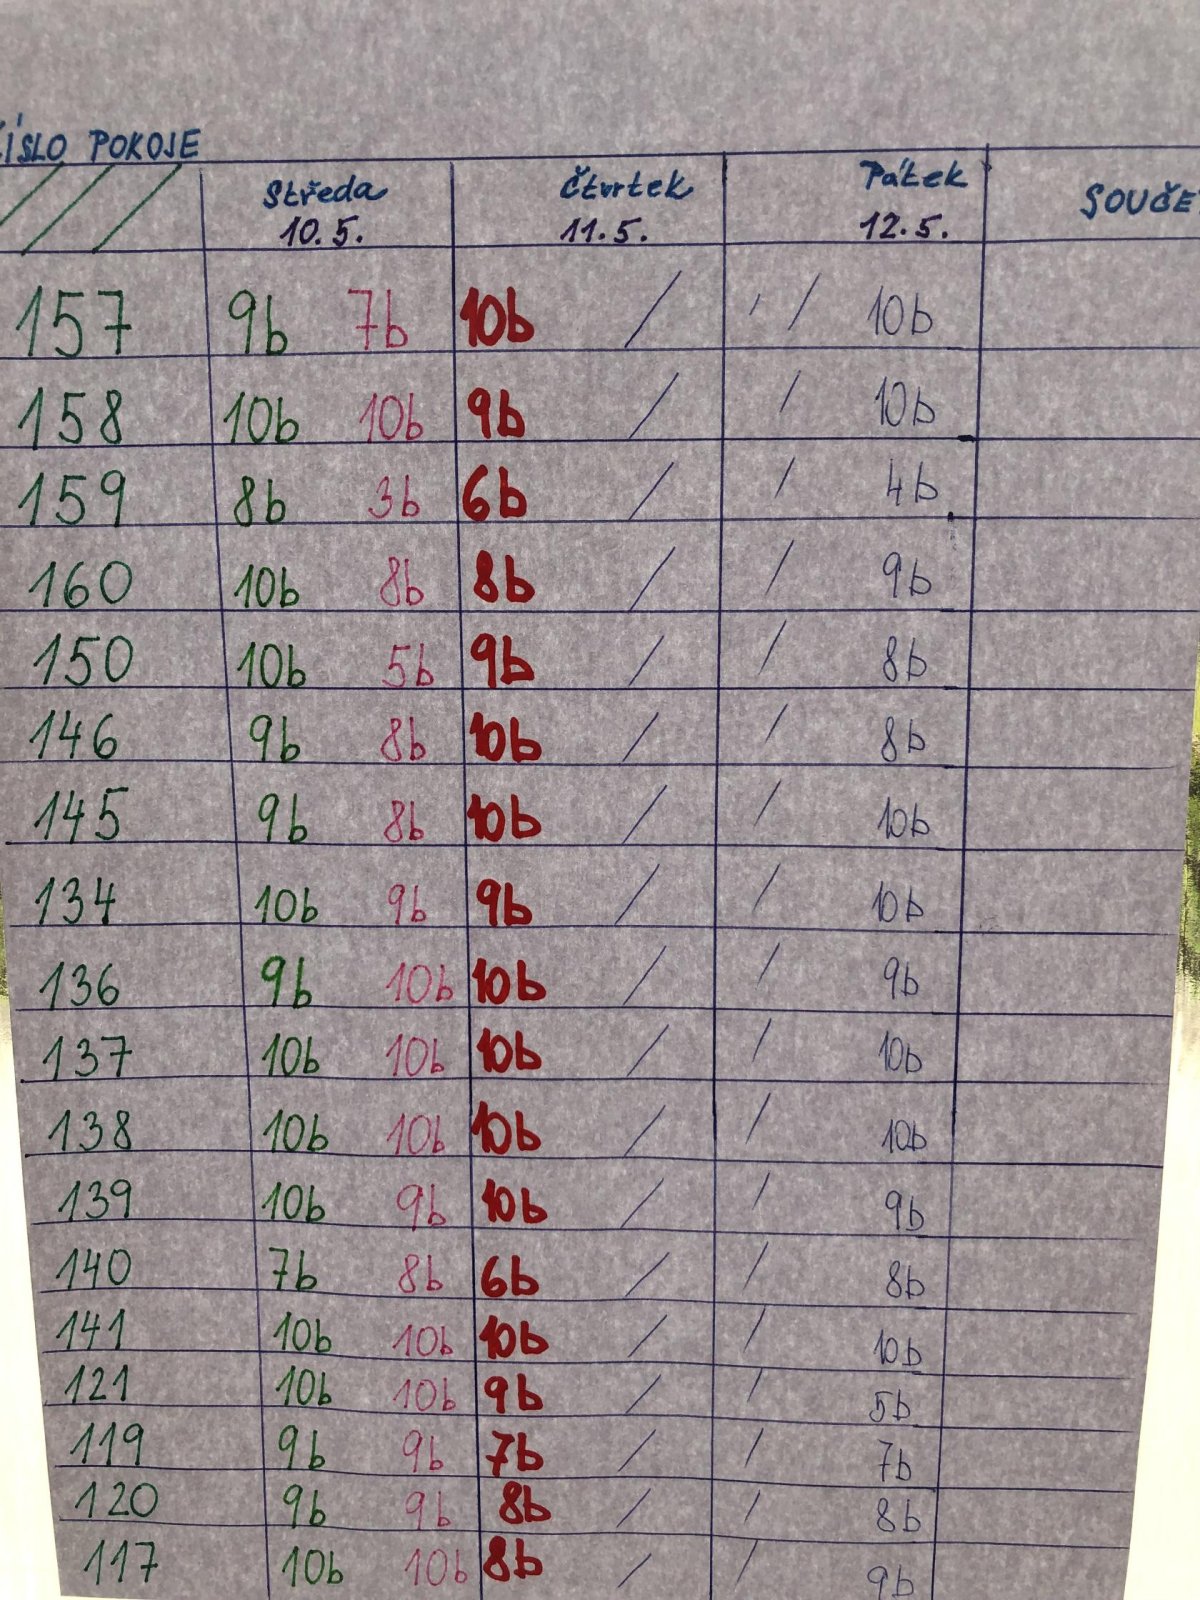 ČÍSLO POKOJE
Středa Čtvrtek Pátek SOUČE
10.5. 11.5. 12.5.
157 9b 7b 10b / / / 10b
158 10b 10b 9b / / 10b
159 8b 3b 6b / / 4b
160 10b 8b 8b / / 9b
150 10b 5b 9b / / 8b
146 9b 8b 10b / / 8b
145 9b 8b 10b / / 10b
134 10b 9b 9b / / 10b
136 9b 10b 10b / / 9b
137 10b 10b 10b / / 10b
138 10b 10b 10b / / 10b
139 10b 9b 10b / / 9b
140 7b 8b 6b / / 8b
141 10b 10b 10b / / 10b
121 10b 10b 9b / / 5b
119 9b 9b 7b / / 7b
120 9b 9b 8b / / 8b
117 10b 10b 8b / / 9b